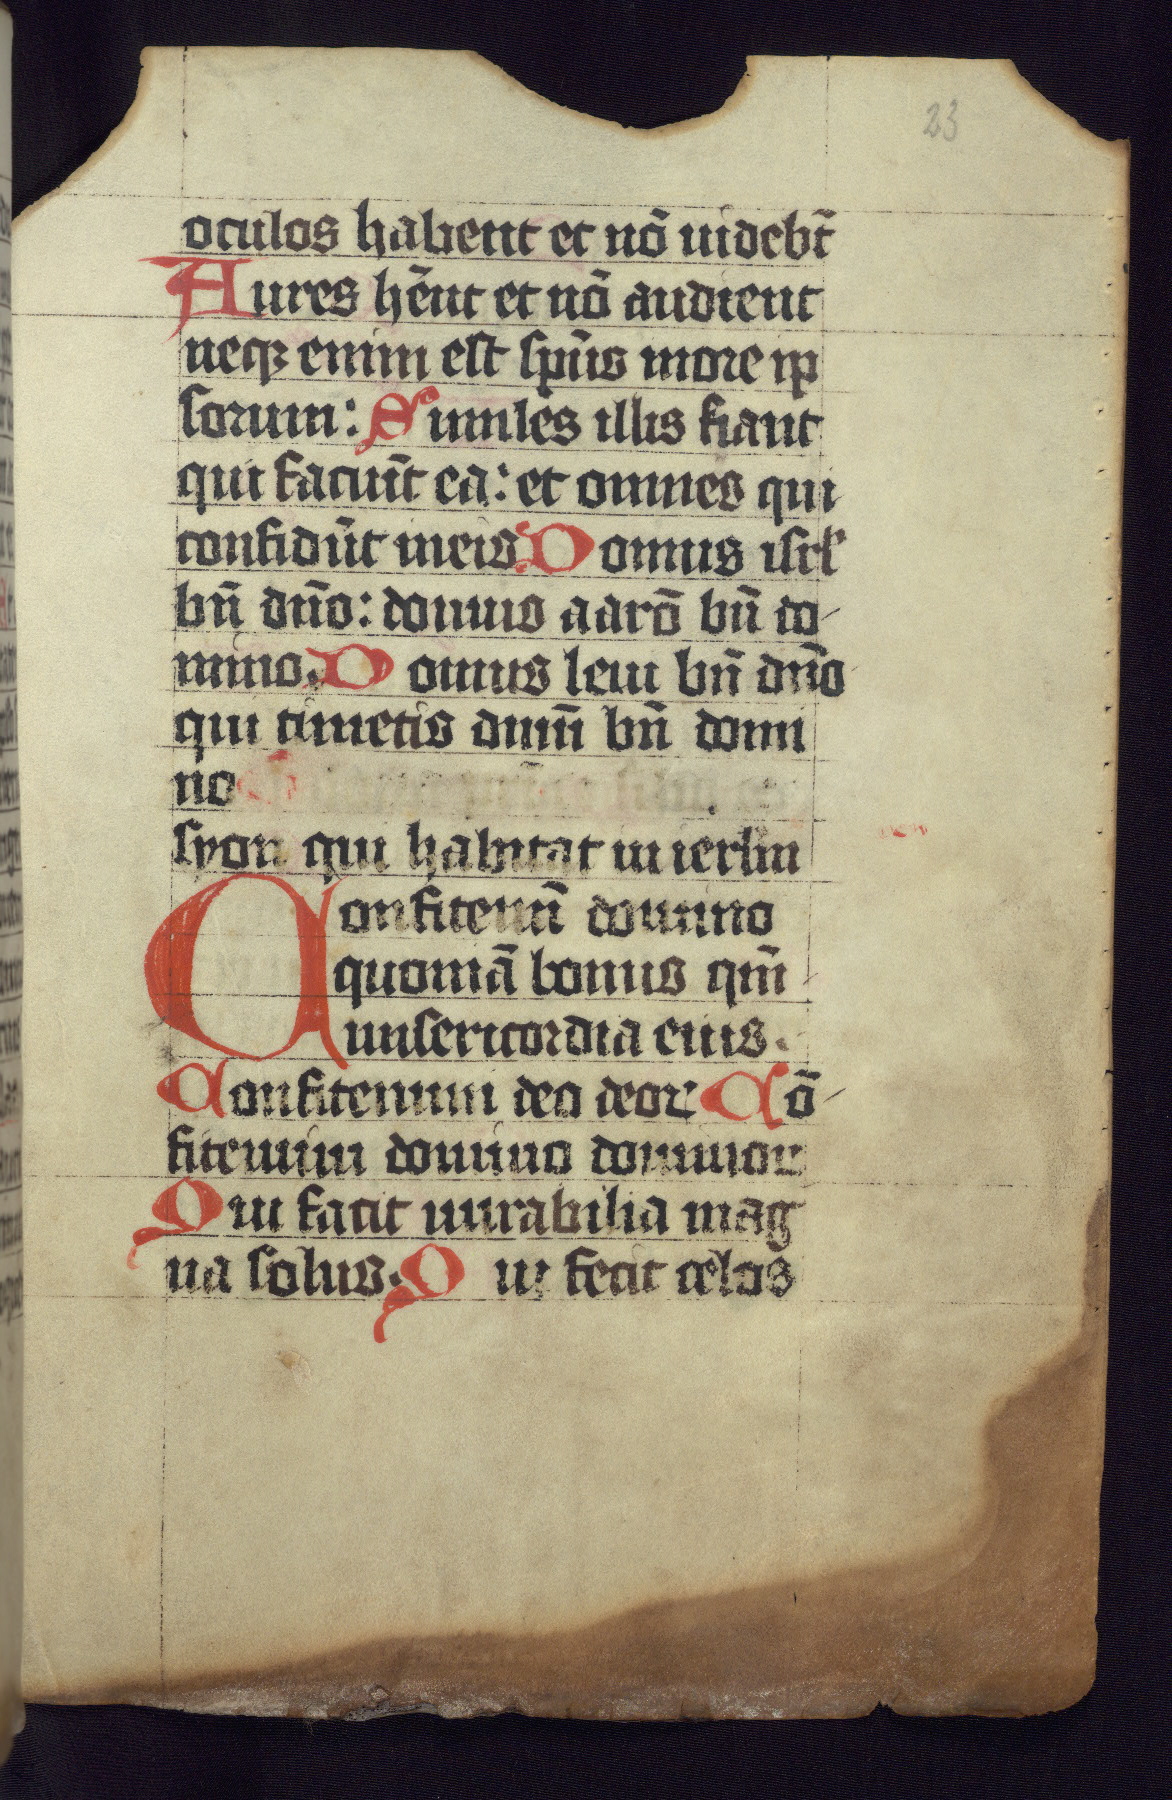 23
oculos habent et nō uidebt̄
Aures hēnt et nō audient
neqꝫ enim est sp̄us more ip
sorum: Similes illis fiant
qui faciūt ea: et omnes qui
confidūt in eis Domus isrl̄
bn̄ dn̄o: domus aarō bn̄ do-
mino. Domus leui bn̄ dn̄o
qui timetis dnm̄ bn̄ domi
no
syon qui habitat in ierlm̄
Confitemī domino
quoniā bonus qm̄
misericordia eius.
Confitemini deo deoꝝ Cō-
fitemini domino dominoꝝ
Qui facit mirabilia mag
na solus. Qui fecit celos